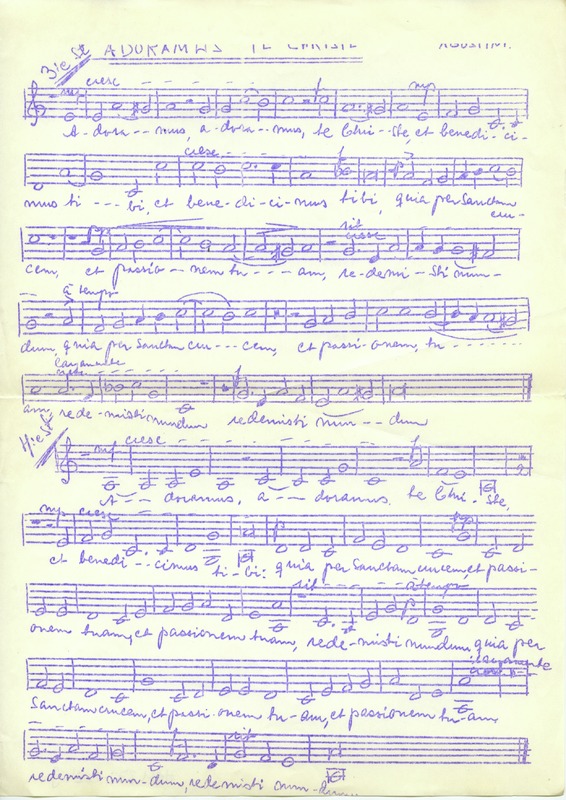 3ie st ADORAMUS TE CHRISTE AGOSTINI.
mp cresc f mp
A-dora--mus, a-dora--mus, te Chri--ste, et benedi-ci-
cresc f
mus ti---bi, et bene-di-ci-mus tibi, quia per Sanctam cru-
rit
cem, et passio--nem tu----am, re-demi--sti mun-
a tempo
dum, quia per Sanctam cru---cem, et passi-onem, tu
f
am, rede-misti mundum redemisti mun---dum
4e st
mf cresc f
A-- doramus, a--- doramus te Chri-ste,
mp cresc
et benedi--cimus ti-bi: quia per Sanctam crucem, et passi-
rit a tempo
onem tuam, et passionem tuam, rede-misti mundum quia per
Sanctam crucem, et passi-onem tu-am, et passionem tu-am
rit
redemisti mun-dum, redemisti mun-dum